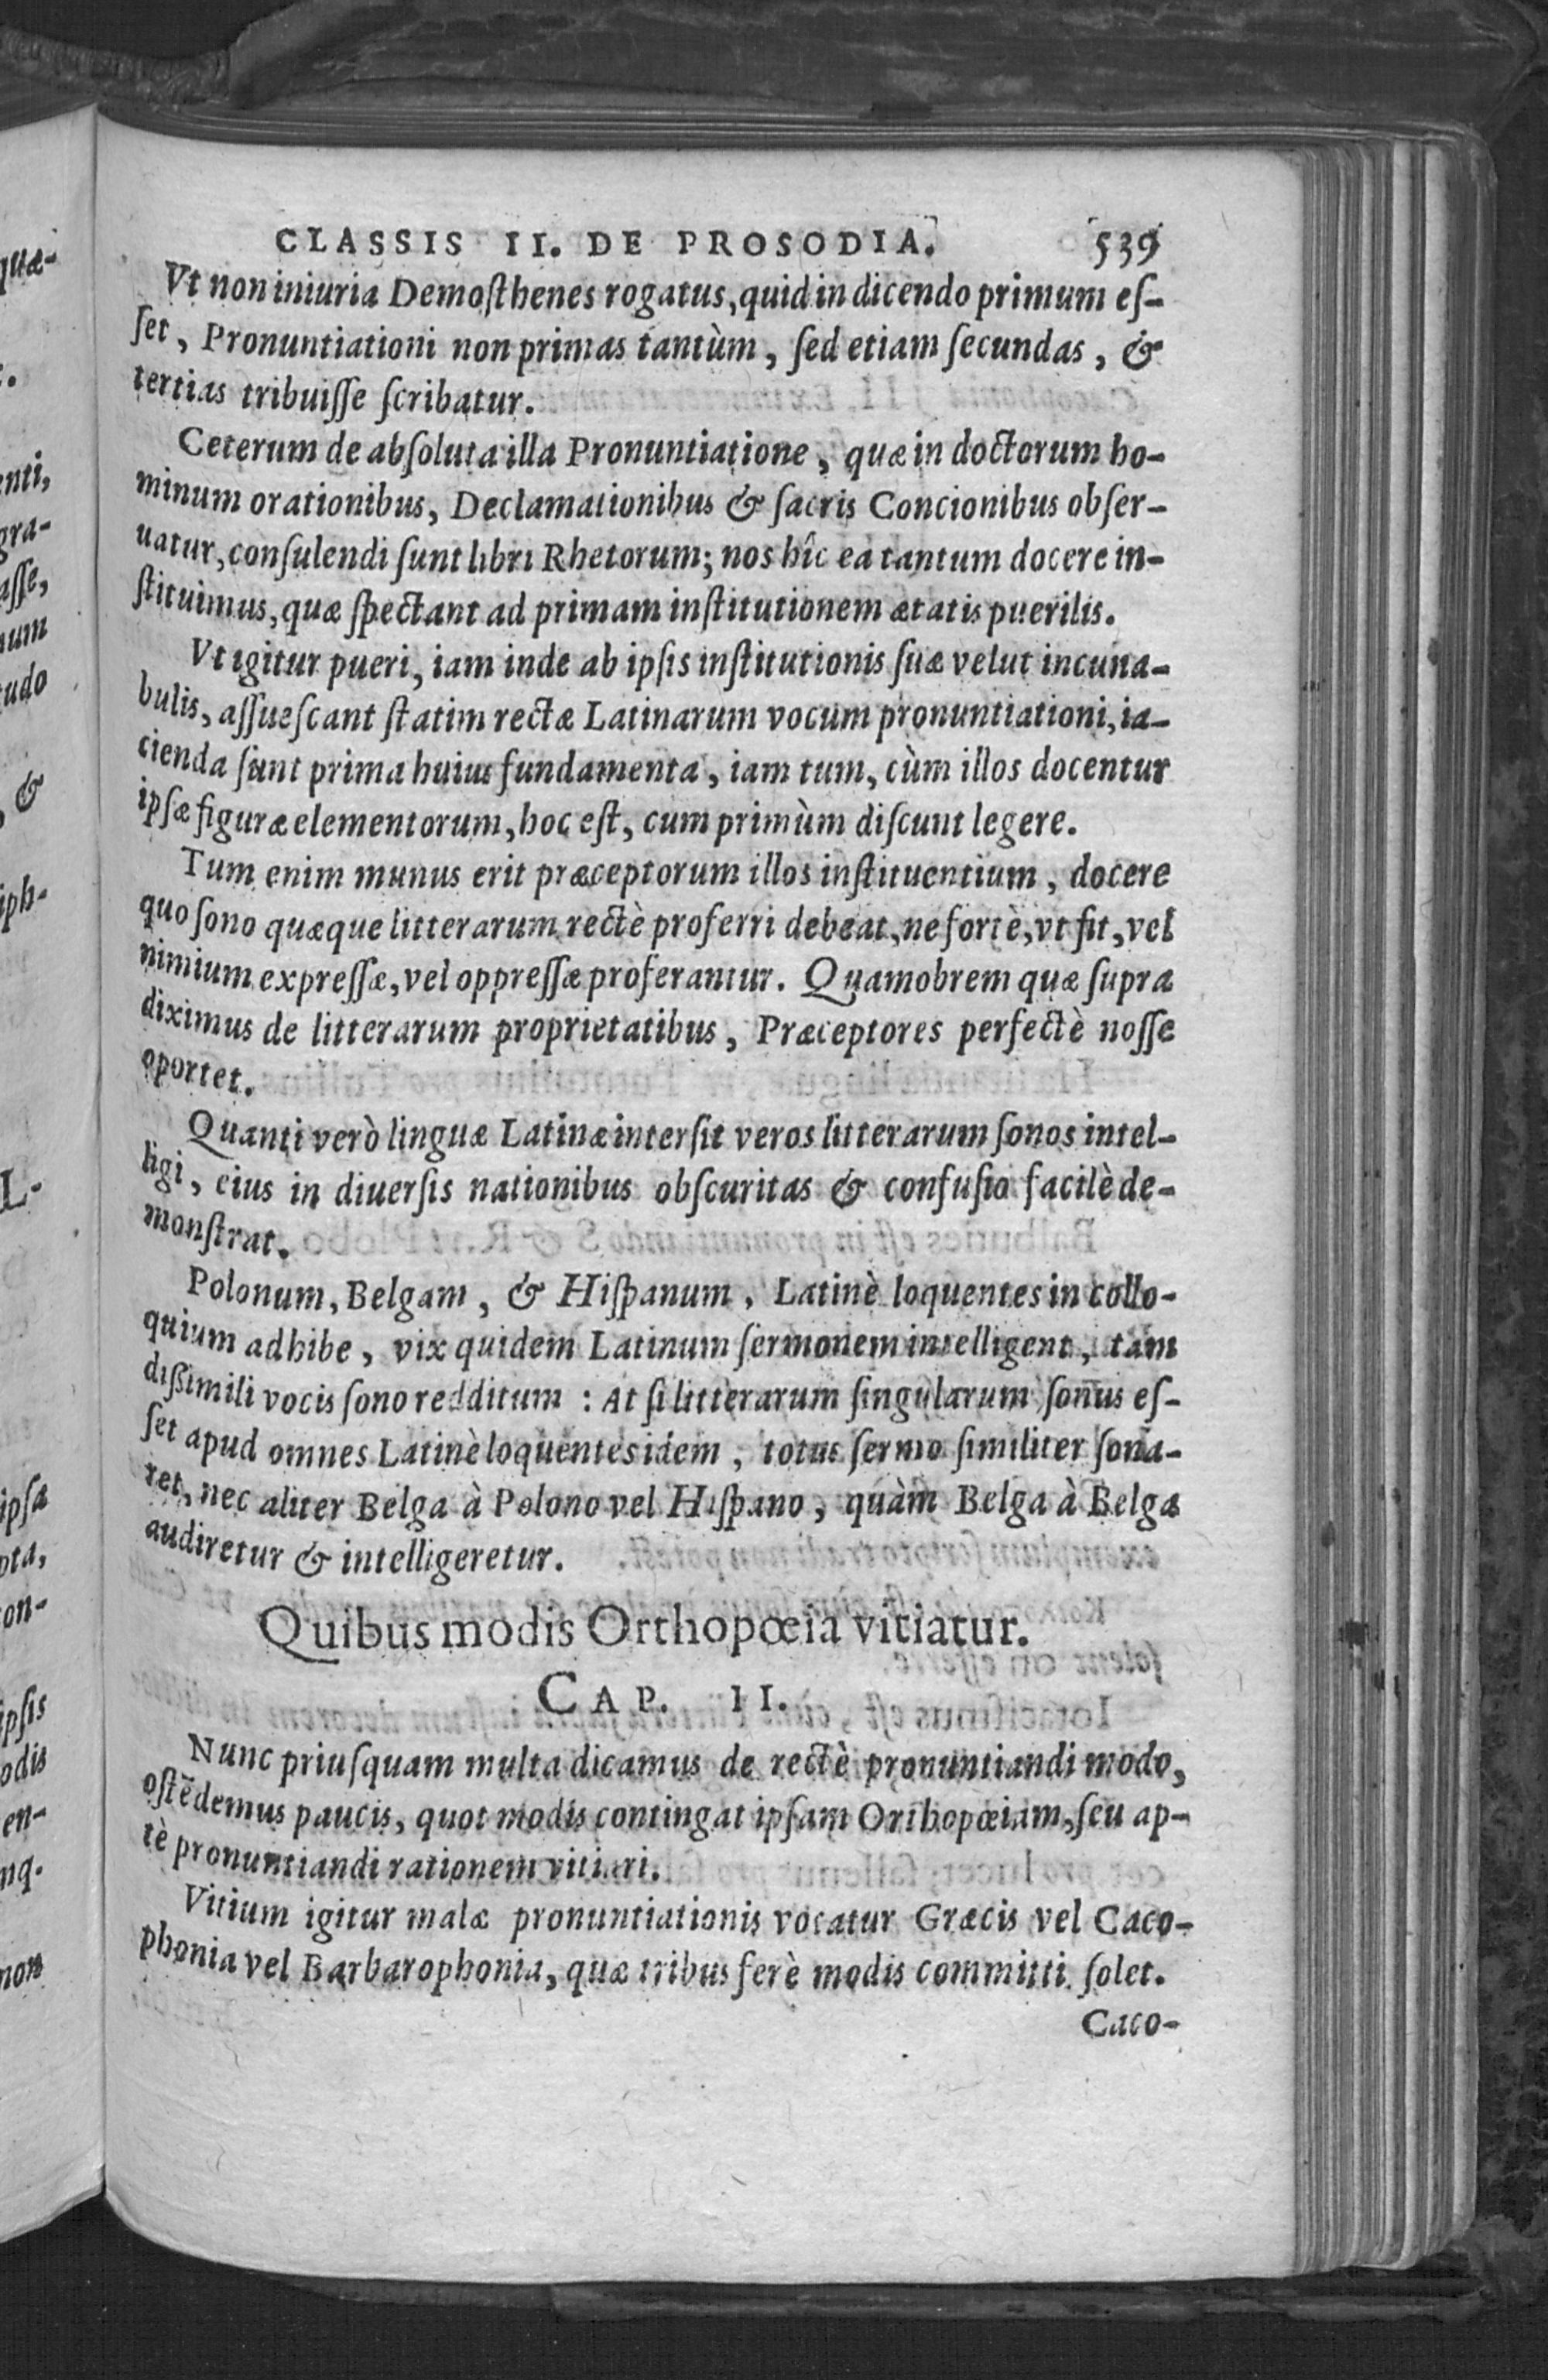 CLASSIS II. DE PROSODIA. 539
Vt non iniuria Demoſthenes rogatus, quid in dicendo primum eſ-
ſet, Pronuntiationi non primas tantùm, ſed etiam ſecundas, &
tertias tribuiſſe ſcribatur.
Ceterum de abſoluta illa Pronuntiatione, quæ in doctorum ho-
minum orationibus, Declamationibus & ſacris Concionibus obſer-
uatur, conſulendi ſunt libri Rhetorum; nos hîc ea tantum docere in-
ſtituimus, quæ ſpectant ad primam inſtitutionem ætatis puerilis.
Vt igitur pueri, iam inde ab ipſis inſtitutionis ſuæ velut incuna-
bulis, aſſueſcant ſtatim rectæ Latinarum vocum pronuntiationi, ia-
cienda ſunt prima huius fundamenta, iam tum, cùm illos docentur
ipſæ figuræ elementorum, hoc eſt, cum primùm diſcunt legere.
Tum enim munus erit præceptorum illos inſtituentium, docere
quo ſono quæque litterarum rectè proferri debeat, ne fortè, vt fit, vel
nimium expreſſæ, vel oppreſſæ proferantur. Quamobrem quæ ſupra
diximus de litterarum proprietatibus, Præceptores perfectè noſſe
oportet.
Quanti verò linguæ Latinæ interſit veros litterarum ſonos intel-
ligi, eius in diuerſis nationibus obſcuritas & confuſio facilè de-
monſtrat.
Polonum, Belgam, & Hiſpanum, Latinè loquentes in collo-
quium adhibe, vix quidem Latinum ſermonem intelligent, tam
dißimili vocis ſono redditum : At ſi litterarum ſingularum ſonus eſ-
ſet apud omnes Latinè loquentes idem, totus ſermo ſimiliter ſona-
ret, nec aliter Belga à Polono vel Hiſpano, quàm Belga à Belga
audiretur & intelligeretur.
Quibus modis Orthopœia vitiatur.
CAP. II.
Nunc priuſquam multa dicamus de rectè pronuntiandi modo,
oſtēdemus paucis, quot modis contingat ipſam Orthopœiam, ſeu ap-
tè pronuntiandi rationem vitiari.
Vitium igitur malæ pronuntiationis vocatur Græcis vel Caco-
phonia vel Barbarophonia, quæ tribus ferè modis committi ſolet.
Caco-